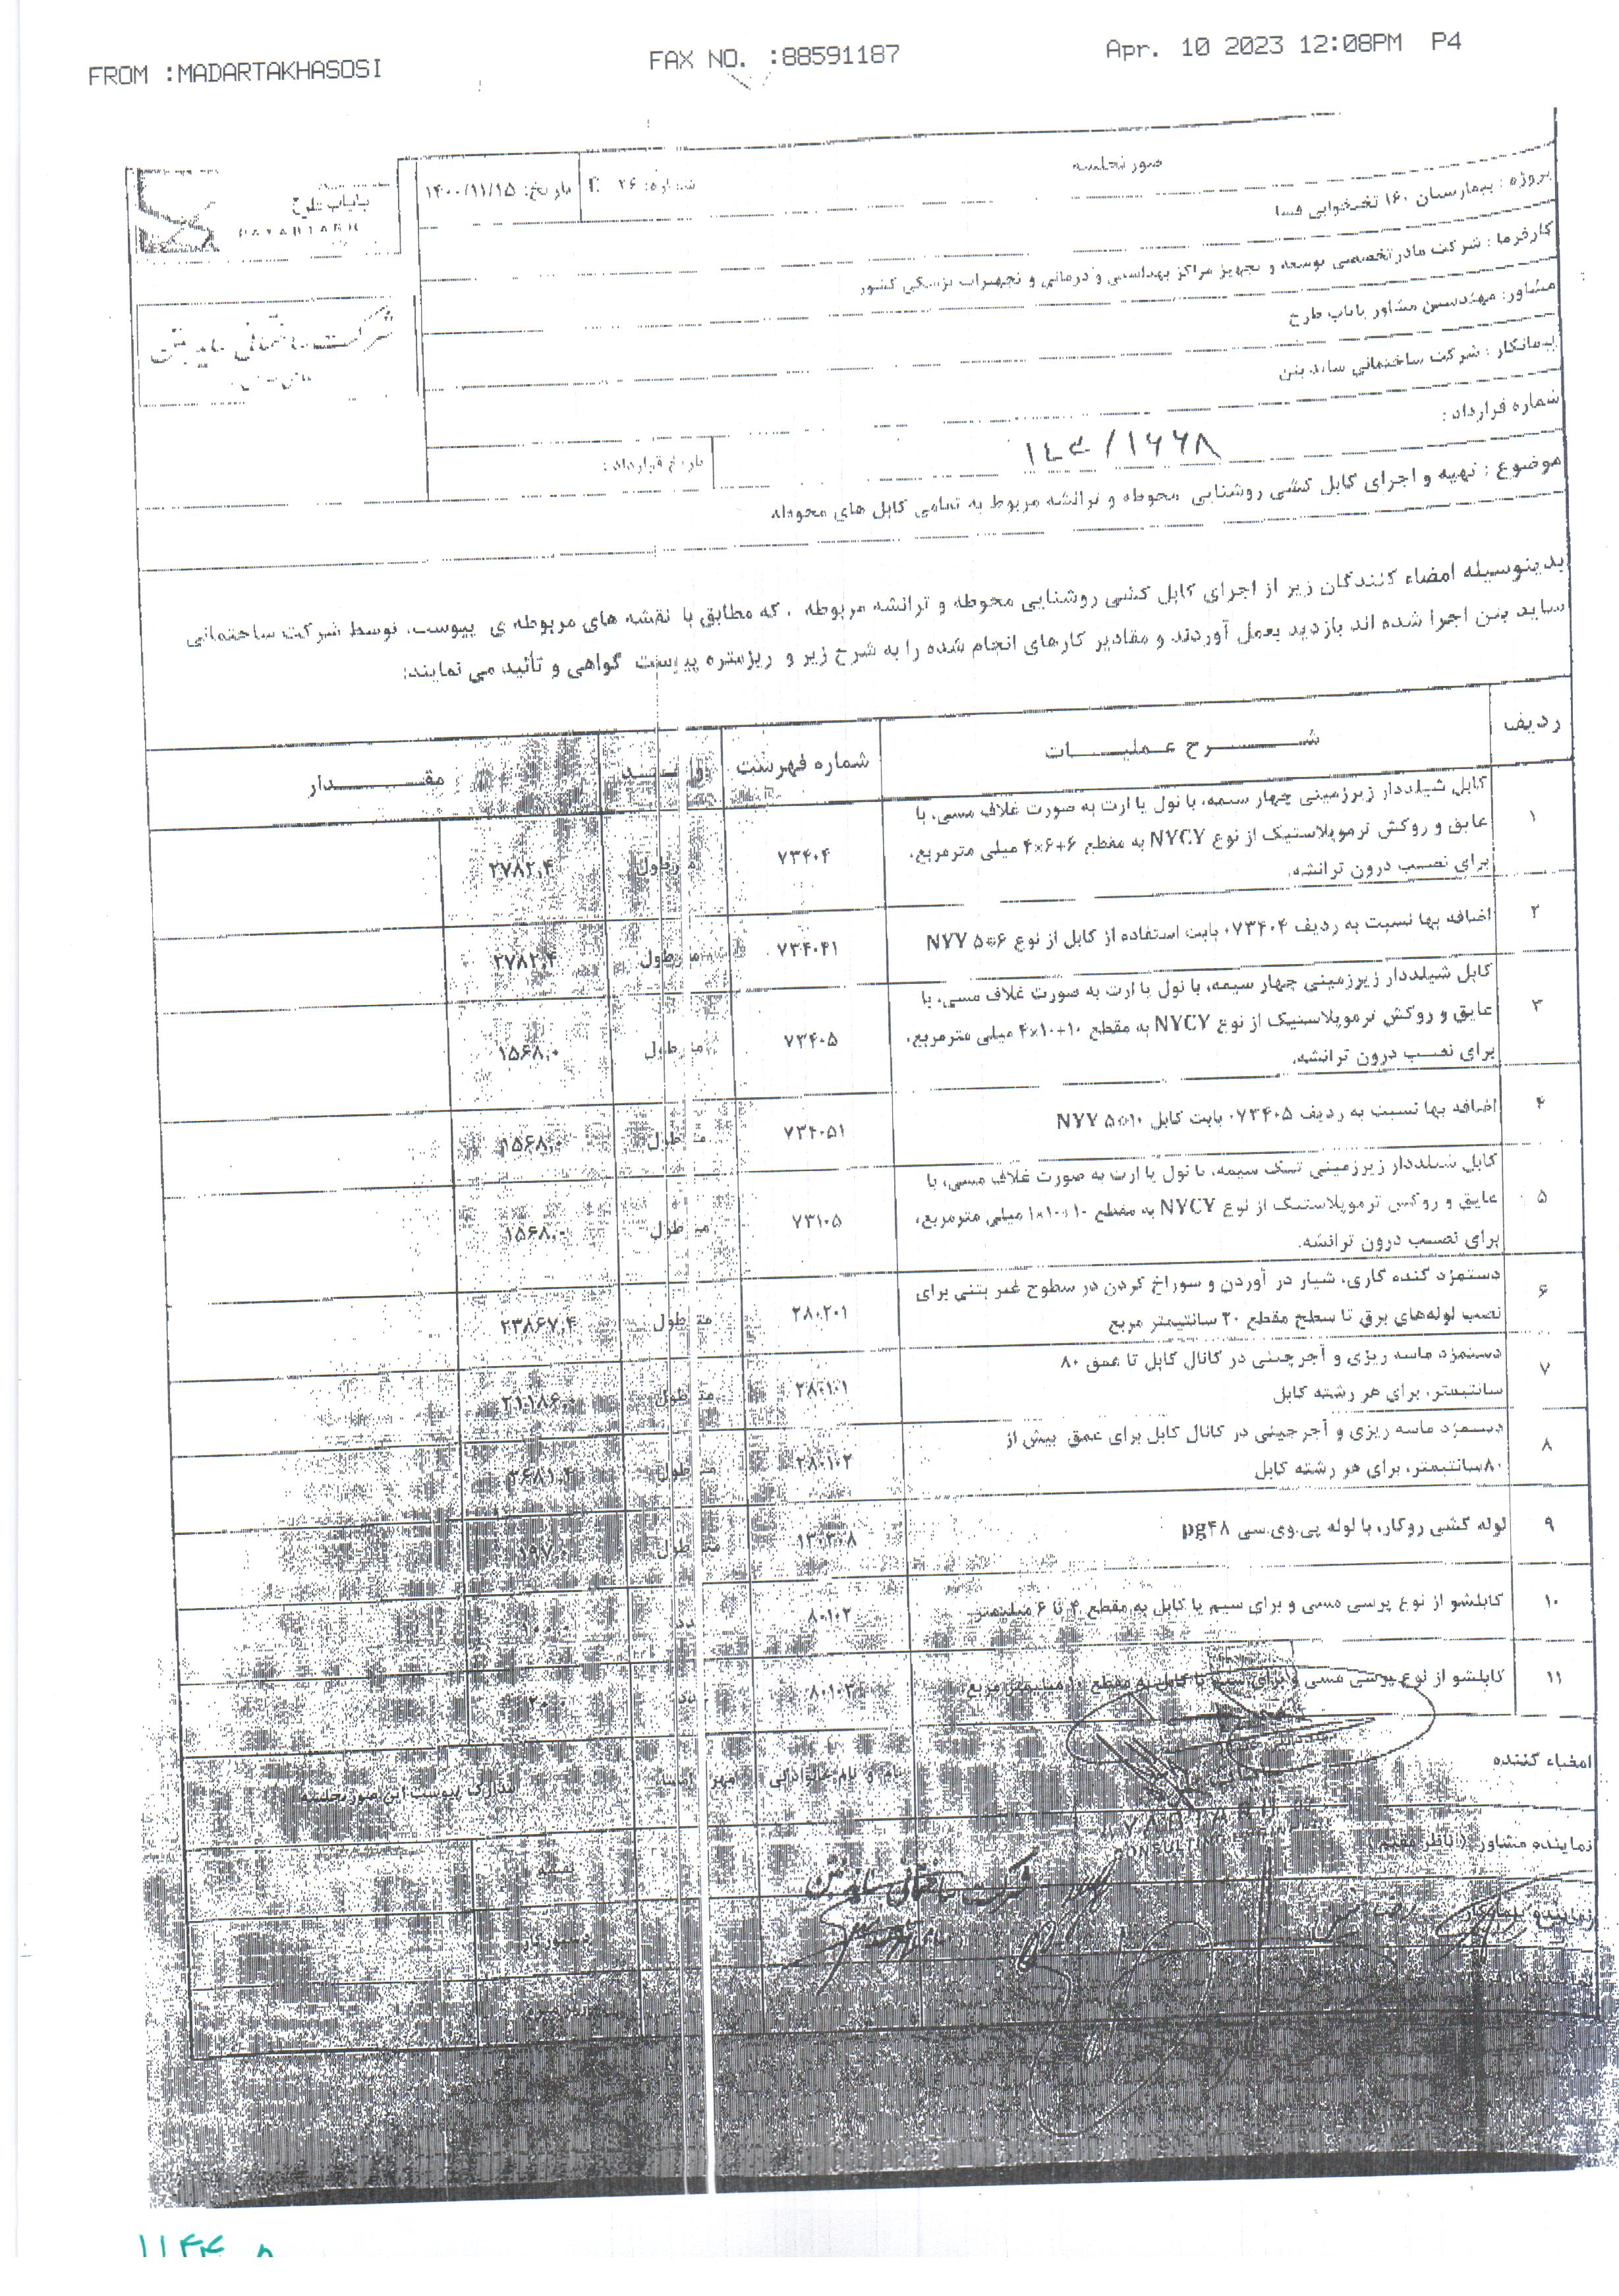 FROM :MADARTAKHASOSI
FAX NO. :88591187
Apr. 10 2023 12:08PM P4
صورتجلسه
شماره: ۲۶
تاریخ: ۱۴۰۰/۱۱/۱۵
پایاب طرح
پروژه : بیمارستان ۱۶۰ تختخوابی فسا
کارفرما : شرکت مادر تخصصی توسعه و تجهیز مراکز بهداشتی و درمانی و تجهیزات پزشکی کشور
مشاور: مهندسین مشاور پایاب طرح
پیمانکار : شرکت ساختمانی ساید بتن
شماره قرارداد :
۱۴۳/۱۶۶۸
تاریخ قرارداد :
موضوع : تهیه و اجرای کابل کشی روشنایی محوطه و ترانشه مربوط به تمامی کابل های محوطه
بدینوسیله امضاء کنندگان زیر از اجرای کابل کشی روشنایی محوطه و ترانشه مربوطه ، که مطابق با نقشه های مربوطه ی پیوست، توسط شرکت ساختمانی
ساید بتن اجرا شده اند بازدید بعمل آوردند و مقادیر کارهای انجام شده را به شرح زیر و ریزمتره پیوست گواهی و تأئید می نمایند:
ردیف شرح عملیات شماره فهرست واحد مقدار
۱ کابل شیلددار زیرزمینی چهار سیمه، با نول یا ارت به صورت غلاف مسی، با
عایق و روکش ترموپلاستیک از نوع NYCY به مقطع ۶+۶×۴ میلی مترمربع،
برای نصب درون ترانشه.
۷۳۴۰۴ مترطول ۲۷۸۲,۴
۲ اضافه بها نسبت به ردیف ۰۷۳۴۰۴ بابت استفاده از کابل از نوع NYY ۵*۶
۷۳۴۰۴۱ مترطول ۲۷۸۲,۴
۳ کابل شیلددار زیرزمینی چهار سیمه، با نول یا ارت به صورت غلاف مسی، با
عایق و روکش ترموپلاستیک از نوع NYCY به مقطع ۱۰+۱۰×۴ میلی مترمربع،
برای نصب درون ترانشه.
۷۳۴۰۵ مترطول ۱۵۶۸,۰
۴ اضافه بها نسبت به ردیف ۰۷۳۴۰۵ بابت کابل NYY ۵*۱۰
۷۳۴۰۵۱ مترطول ۱۵۶۸,۰
۵ کابل شیلددار زیرزمینی تک سیمه، با نول یا ارت به صورت غلاف مسی، با
عایق و روکش ترموپلاستیک از نوع NYCY به مقطع ۱۰+۱۰×۱ میلی مترمربع،
برای نصب درون ترانشه.
۷۳۱۰۵ متر طول ۱۵۶۸,۰
۶ دستمزد کنده کاری، شیار در آوردن و سوراخ کردن در سطوح غیر بتنی برای
نصب لوله‌های برق تا سطح مقطع ۲۰ سانتیمتر مربع
۲۸۰۲۰۱ متر طول ۲۳۸۶۷,۴
۷ دستمزد ماسه ریزی و آجرچینی در کانال کابل تا عمق ۸۰
سانتیمتر، برای هر رشته کابل
۲۸۰۱۰۱ متر طول ۲۱۱۸۶,۰
۸ دستمزد ماسه ریزی و آجرچینی در کانال کابل برای عمق بیش از
۸۰سانتیمتر، برای هر رشته کابل
۲۸۰۱۰۲ متر طول
۹ لوله کشی روکار، با لوله پی.وی.سی pg۴۸
۱۳۰۳۰۸ متر طول
۱۰ کابلشو از نوع پرسی مسی و برای سیم یا کابل به مقطع ۴ تا ۶ میلیمتر
۸۰۱۰۲ عدد
۱۱ کابلشو از نوع پرسی مسی و برای سیم یا کابل به مقطع ۱۰ میلیمتر مربع
عدد
امضاء کننده نام و نام خانوادگی مهر امضاء مدارک پیوست این صورتجلسه
نماینده مشاور (ناظر مقیم) نقشه
نماینده پیمانکار دستورکار
شرکت ساختمانی ساید بتن